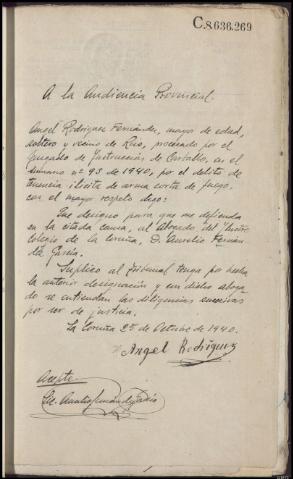 C.8.636.269
A la Audiencia Provincial.
Angel Rodriguez Fernández, mayor de edad,
soltero y vecino de procesado por el
Juzgado de Instrucción, de Carballo, en el
sumario nº 93 de 1940, por el delito de
tenencia ilícita de arma corta de fuego.
con el mayor respeto digo:
Que designo para que me defienda
en la citada causa, al abogado del Ilustre
colegio de la Coruña, D. Aurelio Fernán
dez García.
Suplico al Tribunal tenga por hecha
la anterior designación y con dicho aboga
do se entiendan las diligencias sucesivas
por ser de justicia.
La Coruña 25 de Octubre de 1940.
Angel Rodriguez
Acepto